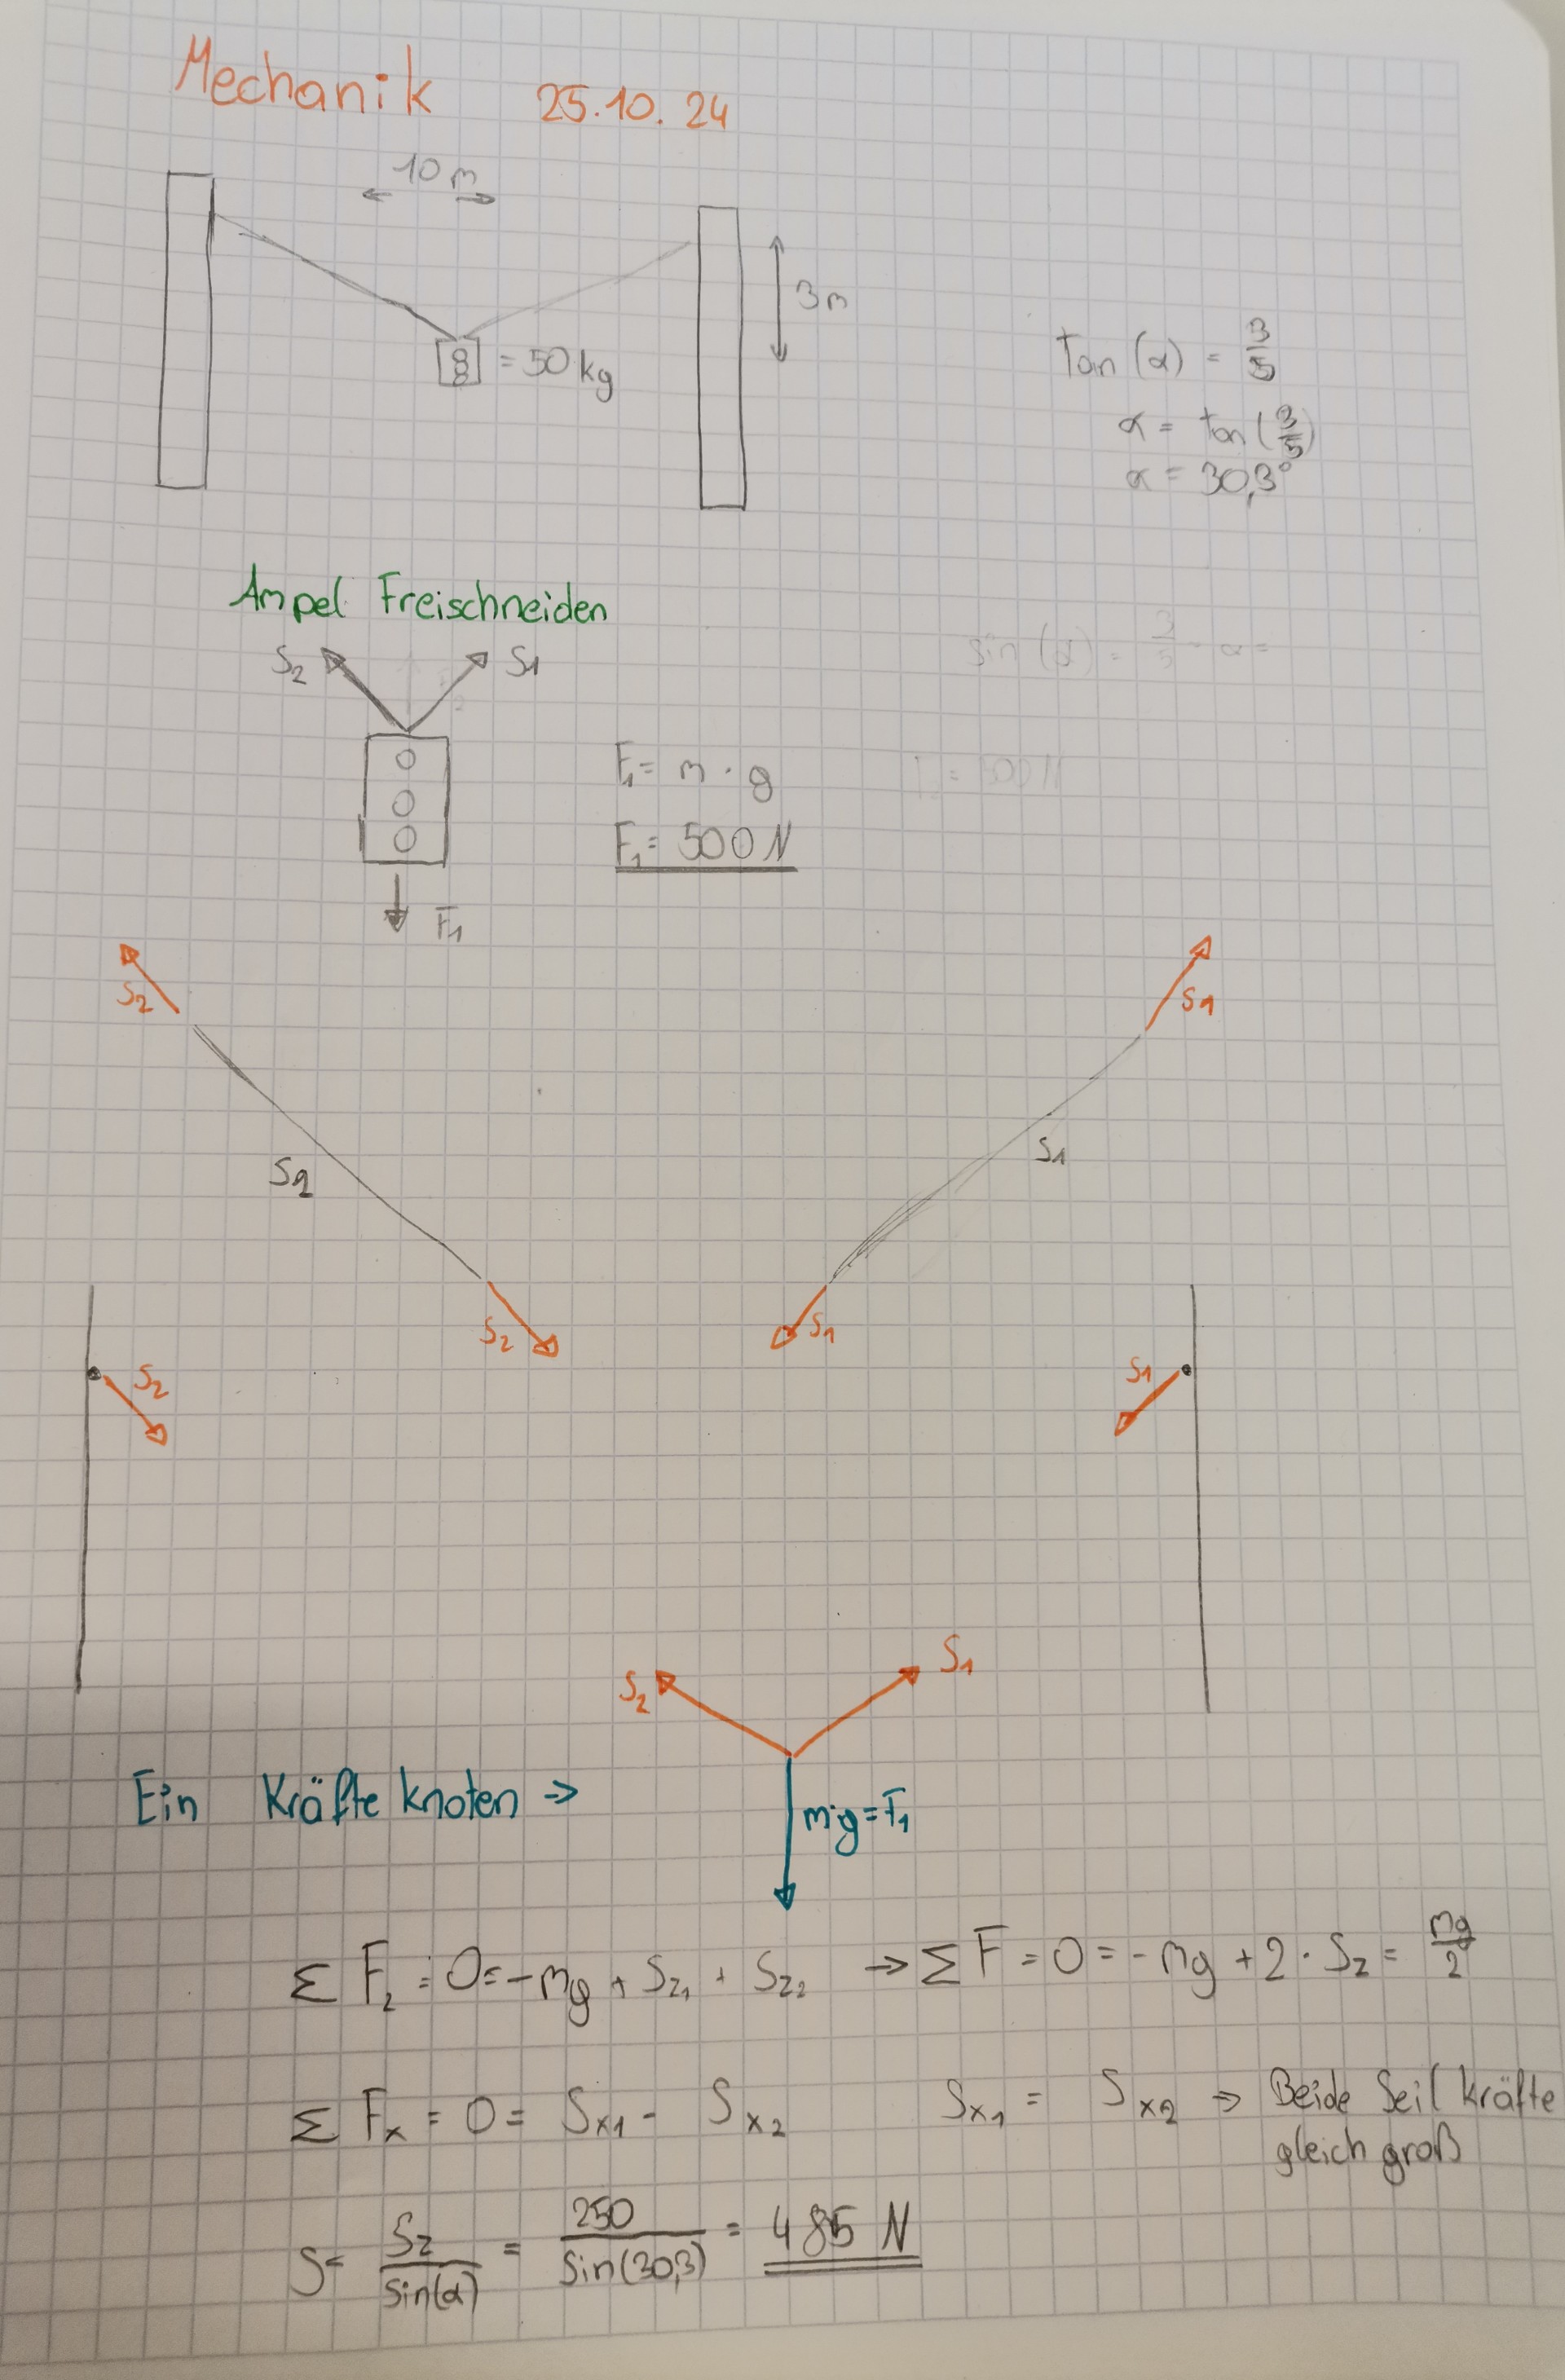 Mechanik 25.10.24
10 m
3m
= 50 kg
tan (α) = 3/5
α = tan (3/5)
α = 30,3°
Ampel Freischneiden
sin (α) = 3/5 α =
S2 S1
F1 = m · g
F1 = 500 N
F1
S2 S1
S2 S1
S2 S1
S2 S1
S2 S1
Ein Kräfte knoten →
m·g = F1
Σ Fz = 0 = -mg + Sz1 + Sz2 → Σ F = 0 = -mg + 2 · Sz = mg/2
Σ Fx = 0 = Sx1 - Sx2 Sx1 = Sx2 → Beide Seil kräfte
gleich groß
S = Sz/sin(α) = 250/sin(30,3) = 485 N